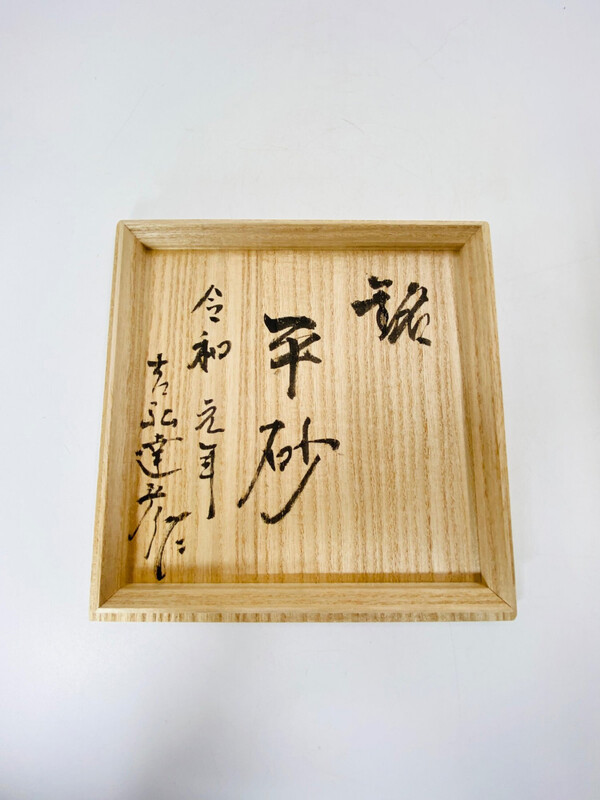 銘
平砂
令和元年
吉弘達彦作